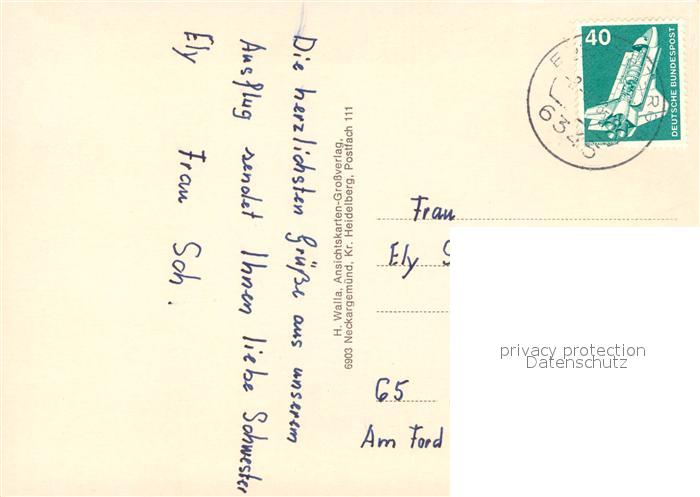 Die herzlichsten Grüße aus unserem
Ausflug sendet Ihnen liebe Schwester
Ely Frau Sch.
H. Walla, Ansichtskarten-Großverlag,
6903 Neckargemünd, Kr. Heidelberg, Postfach 111
40
DEUTSCHE BUNDESPOST
6345
Frau
Ely
65
Am Ford
privacy protection
Datenschutz